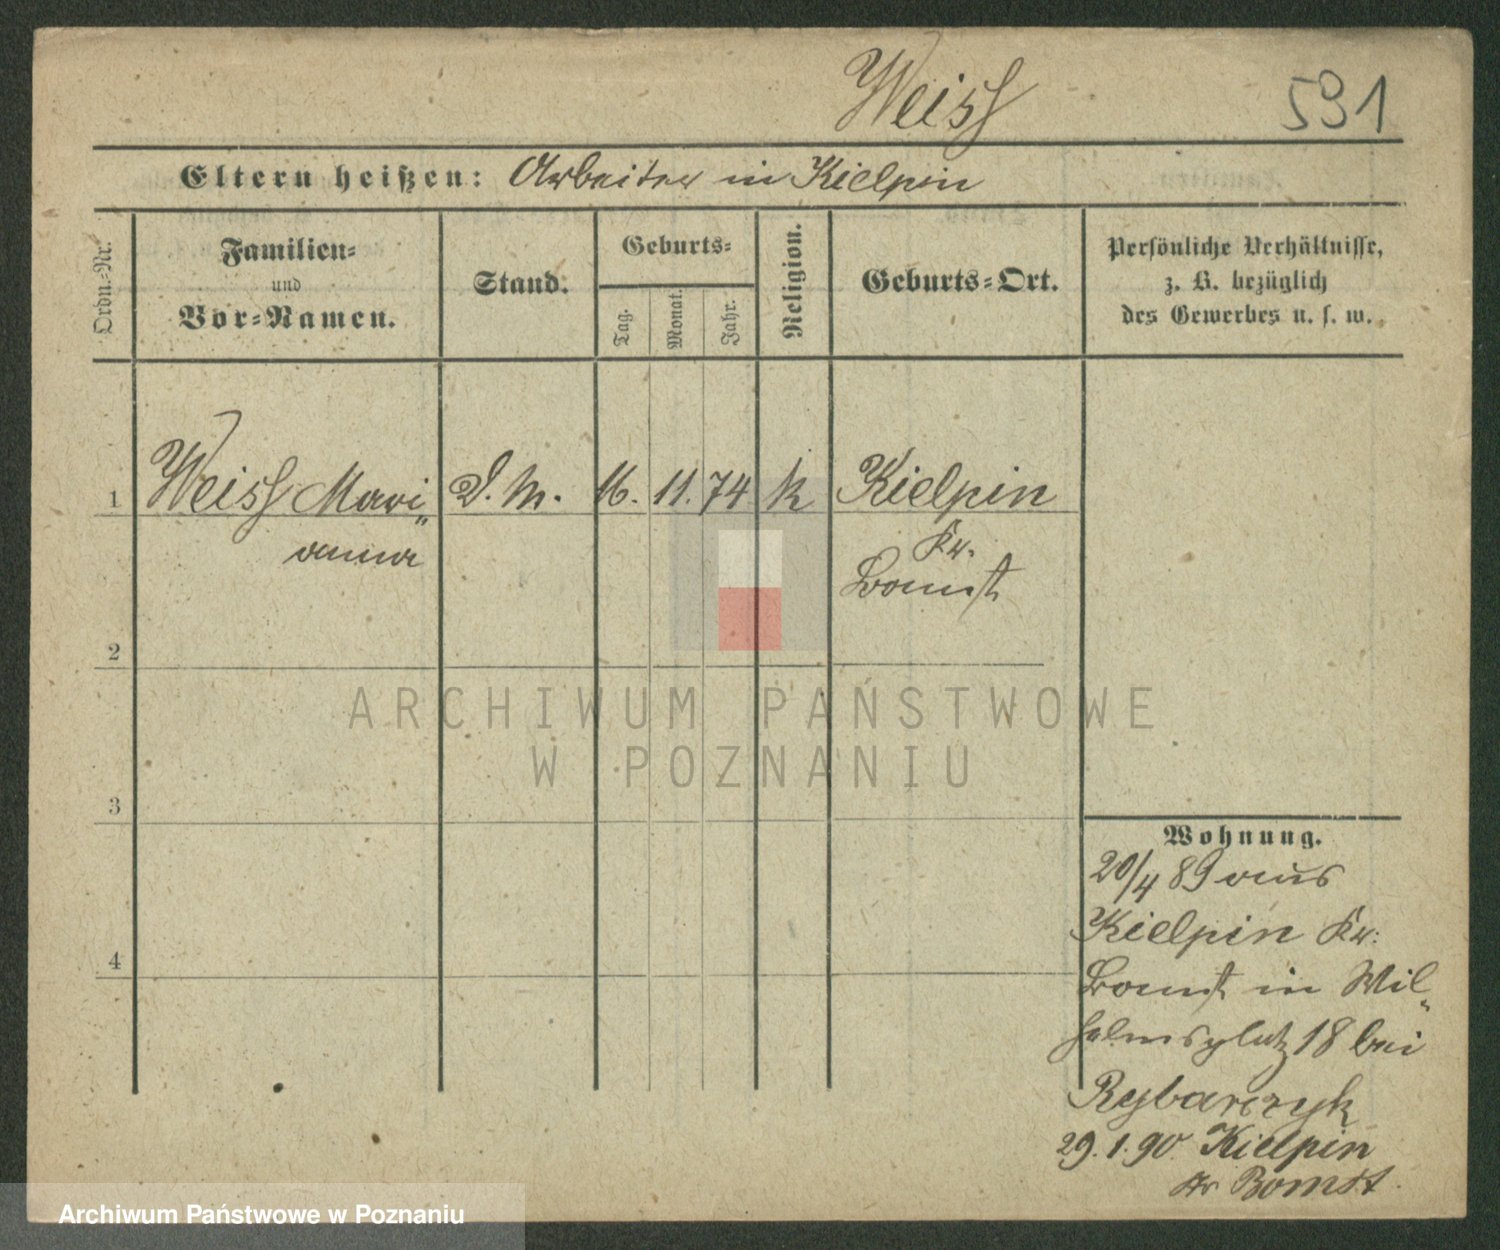 Weiss
591
Eltern heißen: Arbeiter in Kielpin
Ordn.-Nr.
Familien-
und
Vor-Namen.
Stand.
Geburts-
Tag.
Monat.
Jahr.
Religion.
Geburts-Ort.
Persönliche Verhältnisse,
z. B. bezüglich
des Gewerbes u. s. w.
1 Weiss Mari„ D. M. 16. 11. 74 k Kielpin
anna
Kr.
Bomst
2
ARCHIWUM PAŃSTWOWE
W POZNANIU
3
4
Wohnung.
20/4 89 aus
Kielpin Kr.
Bomst in Wil„
helmsplatz 18 bei
Rybarczyk
29.1.90 Kielpin
Kr Bomst.
Archiwum Państwowe w Poznaniu